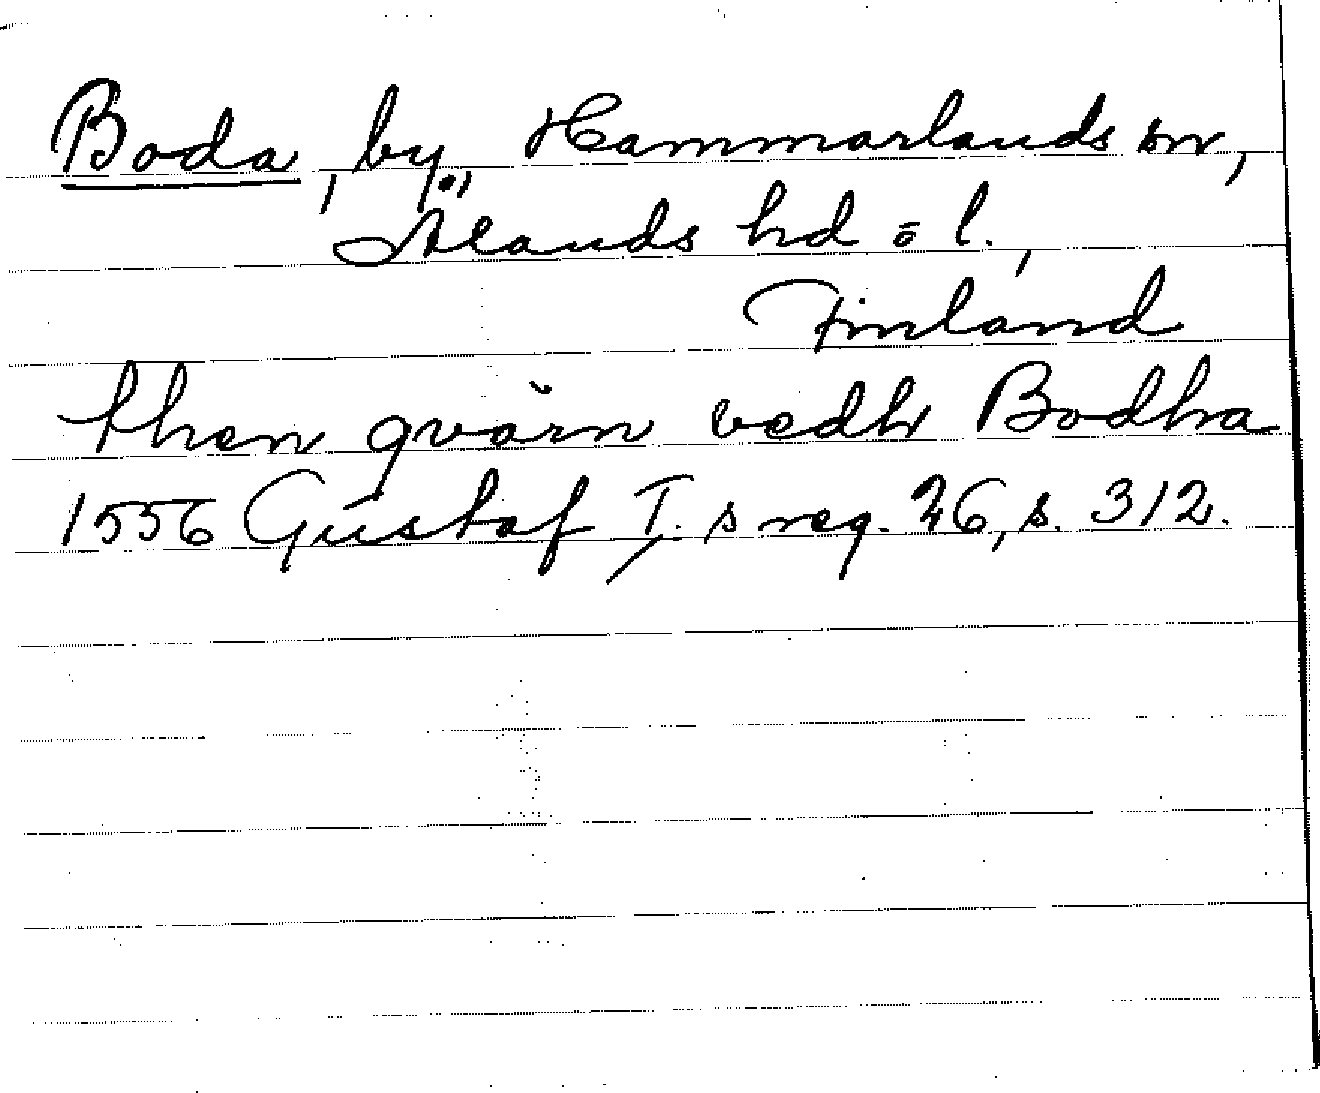 Boda, by, Hammarlands sn,
Ålands hd o l.,
Finland
then qvärn vedh Bodha
1556 Gustaf I.s reg. 26, s. 312.